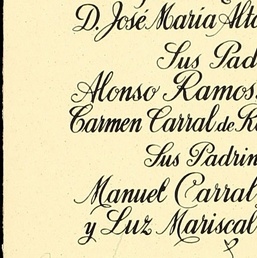 D. José María Alta
Sus Pad
Alonso Ramos
Carmen Carral de R
Sus Padrin
Manuel Carral
y Luz Mariscal